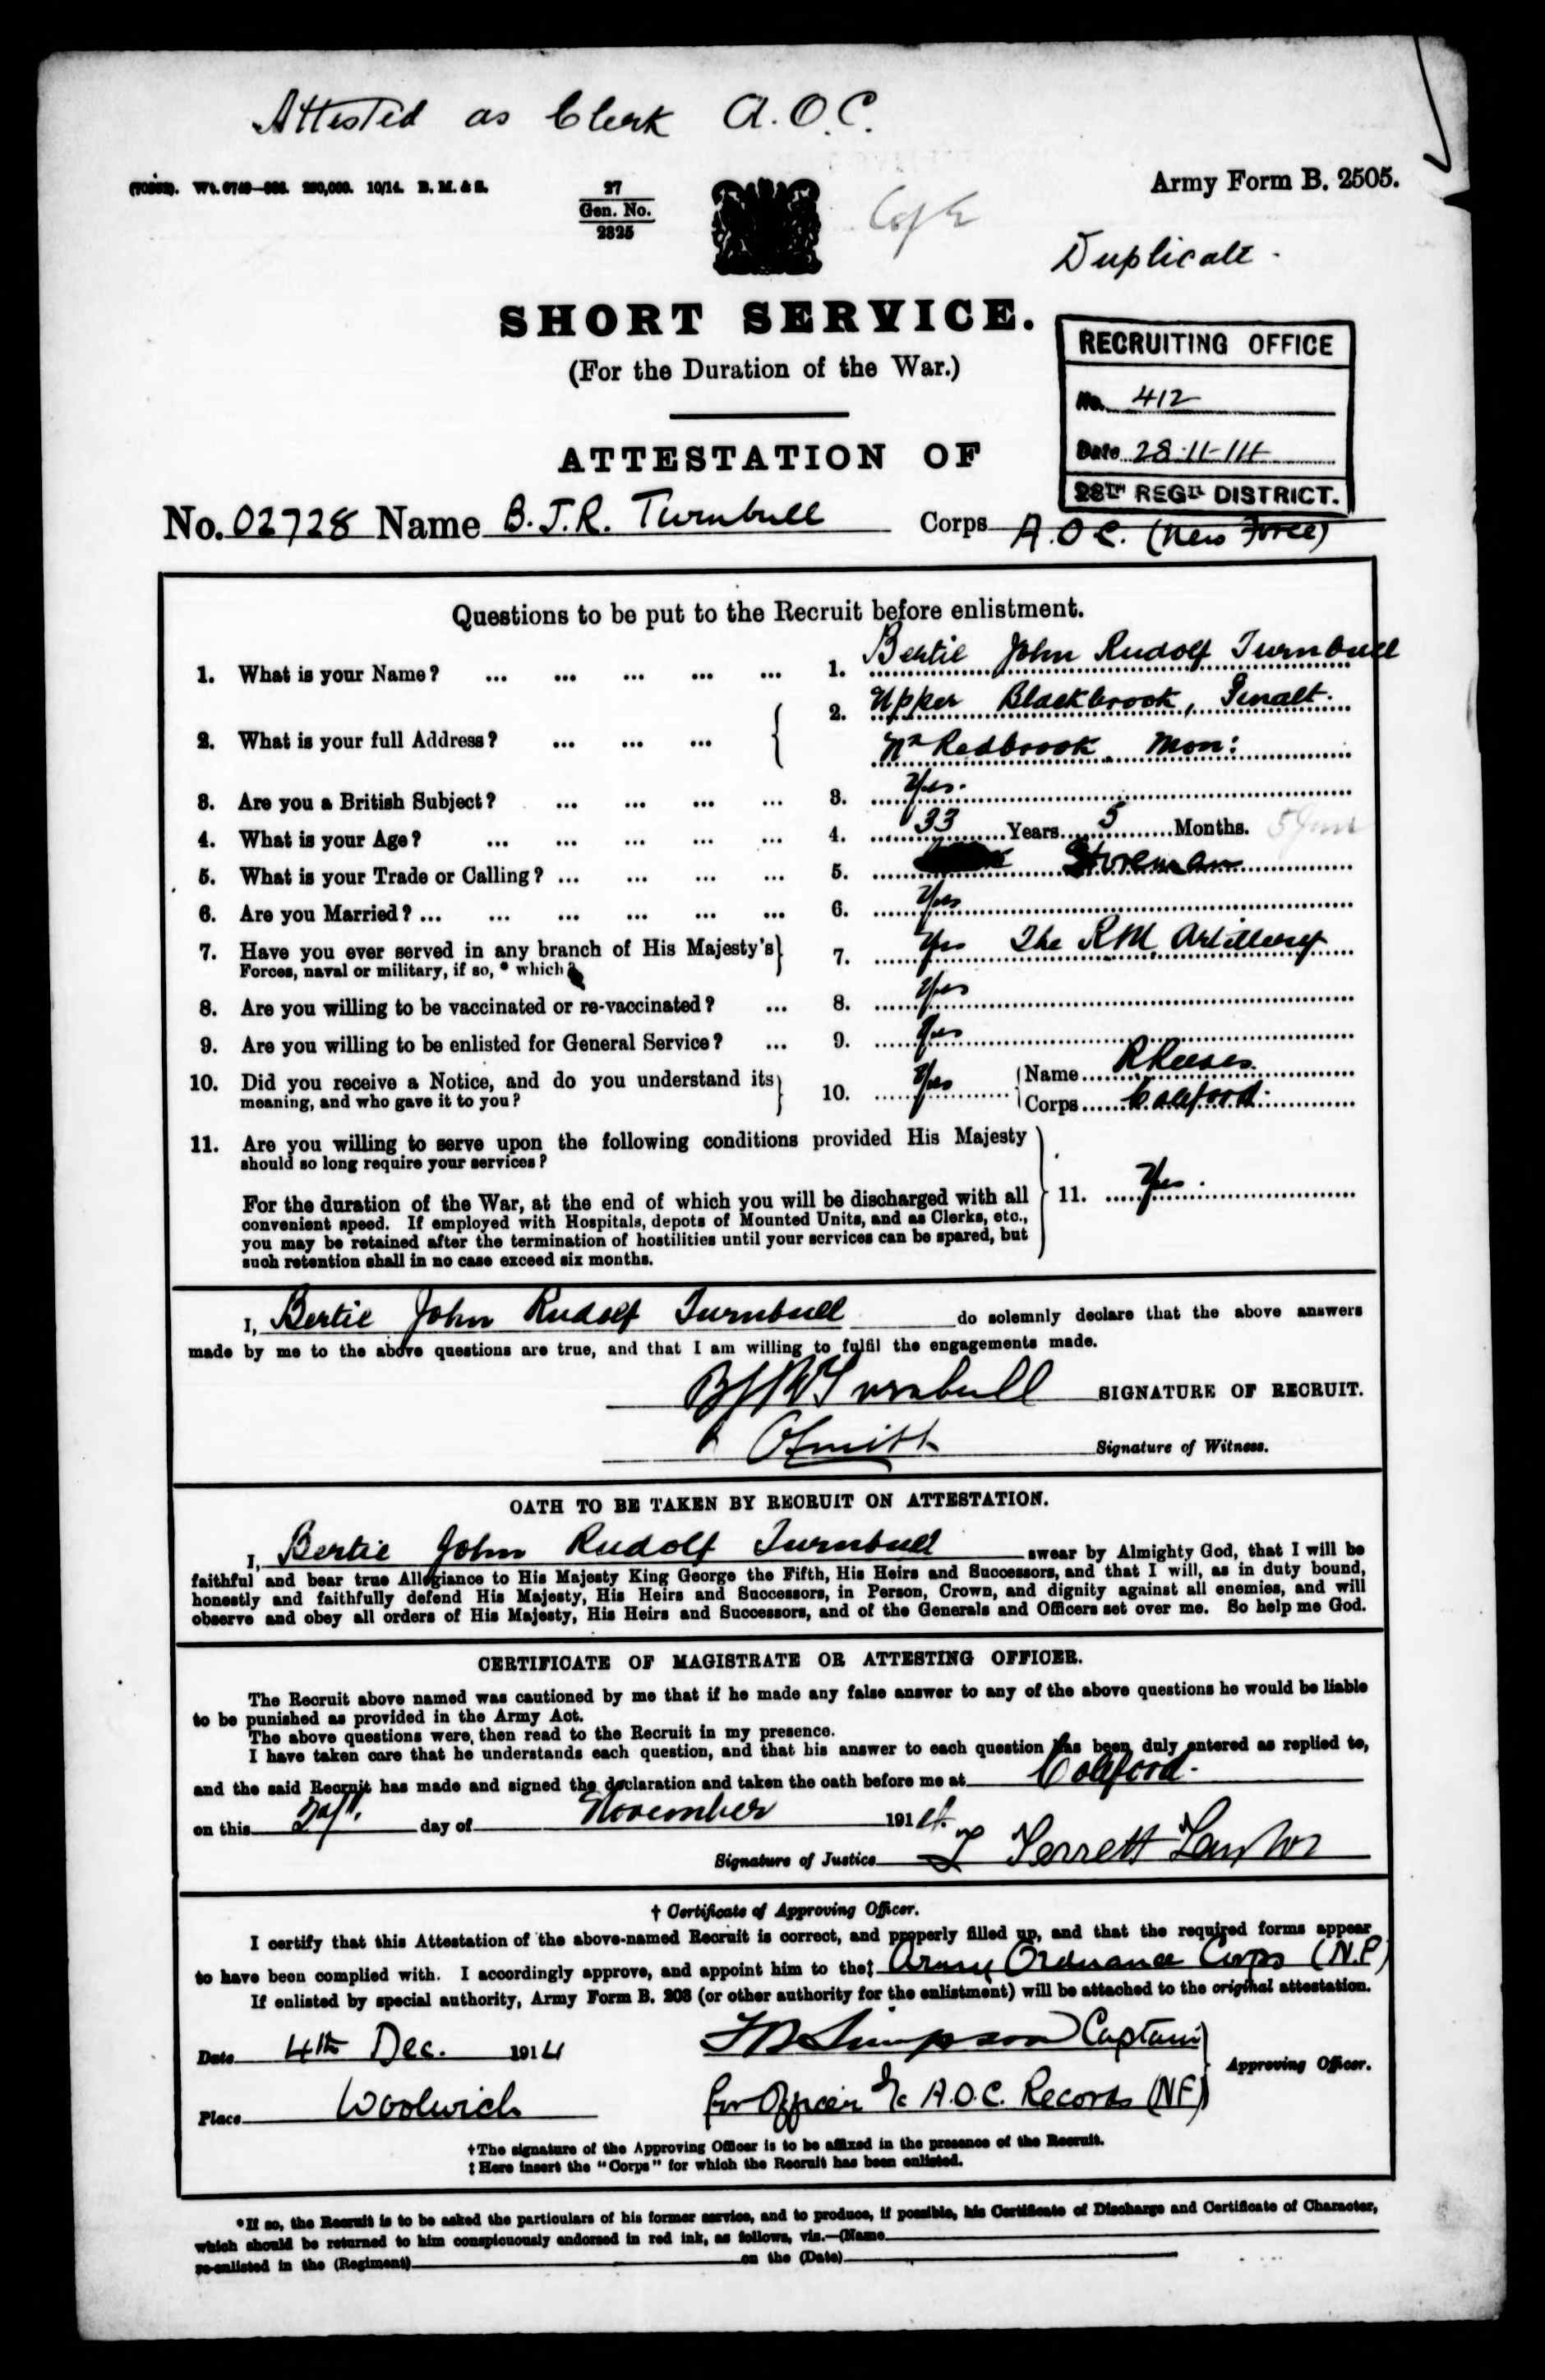 Attested as Clerk A.O.C.
(70352). Wt. 6749—. 250,000. 10/14. B. M. & S.
27
Gen. No.
2325
Army Form B. 2505.
Duplicate.
SHORT SERVICE.
(For the Duration of the War.)
RECRUITING OFFICE
No. 412
Date 28-11-14
28TH REGTL DISTRICT.
ATTESTATION OF
No. 02728 Name B.J.R. Turnbull Corps A.O.C. (New Force)
Questions to be put to the Recruit before enlistment.
1. What is your Name? ... ... ... ... ... 1. Bertie John Rudolf Turnbull
2. What is your full Address? ... ... ... 2. Upper Blackbrook, Penalt.
Nr Redbrook Mon:
3. Are you a British Subject? ... ... ... ... 3. Yes.
4. What is your Age? ... ... ... ... ... 4. 33 Years 5 Months.
5. What is your Trade or Calling? ... ... ... ... 5. Storeman
6. Are you Married? ... ... ... ... ... ... 6. Yes
7. Have you ever served in any branch of His Majesty's 7. Yes The R.M. Artillery
Forces, naval or military, if so, * which?
8. Are you willing to be vaccinated or re-vaccinated? ... 8. Yes
9. Are you willing to be enlisted for General Service? ... 9. Yes
10. Did you receive a Notice, and do you understand its 10. Yes Name
meaning, and who gave it to you? Corps Coleford.
11. Are you willing to serve upon the following conditions provided His Majesty
should so long require your services?
For the duration of the War, at the end of which you will be discharged with all 11. Yes.
convenient speed. If employed with Hospitals, depots of Mounted Units, and as Clerks, etc.,
you may be retained after the termination of hostilities until your services can be spared, but
such retention shall in no case exceed six months.
I, Bertie John Rudolf Turnbull do solemnly declare that the above answers
made by me to the above questions are true, and that I am willing to fulfil the engagements made.
BJR Turnbull SIGNATURE OF RECRUIT.
Smith Signature of Witness.
OATH TO BE TAKEN BY RECRUIT ON ATTESTATION.
I, Bertie John Rudolf Turnbull swear by Almighty God, that I will be
faithful and bear true Allegiance to His Majesty King George the Fifth, His Heirs and Successors, and that I will, as in duty bound,
honestly and faithfully defend His Majesty, His Heirs and Successors, in Person, Crown, and dignity against all enemies, and will
observe and obey all orders of His Majesty, His Heirs and Successors, and of the Generals and Officers set over me. So help me God.
CERTIFICATE OF MAGISTRATE OR ATTESTING OFFICER.
The Recruit above named was cautioned by me that if he made any false answer to any of the above questions he would be liable
to be punished as provided in the Army Act.
The above questions were then read to the Recruit in my presence.
I have taken care that he understands each question, and that his answer to each question has been duly entered as replied to,
and the said Recruit has made and signed the declaration and taken the oath before me at Coleford.
on this day of November 1914.
Signature of Justice Terrett
† Certificate of Approving Officer.
I certify that this Attestation of the above-named Recruit is correct, and properly filled up, and that the required forms appear
to have been complied with. I accordingly approve, and appoint him to the‡ Army Ordnance Corps (N.F)
If enlisted by special authority, Army Form B. 203 (or other authority for the enlistment) will be attached to the original attestation.
Date 4th Dec. 1914 Simpson Captain
Approving Officer.
Place Woolwich for Officer i/c A.O.C. Records (NF)
†The signature of the Approving Officer is to be affixed in the presence of the Recruit.
‡Here insert the "Corps" for which the Recruit has been enlisted.
*If so, the Recruit is to be asked the particulars of his former service, and to produce, if possible, his Certificate of Discharge and Certificate of Character,
which should be returned to him conspicuously endorsed in red ink, as follows, viz.—(Name
re-enlisted in the (Regiment) on the (Date)